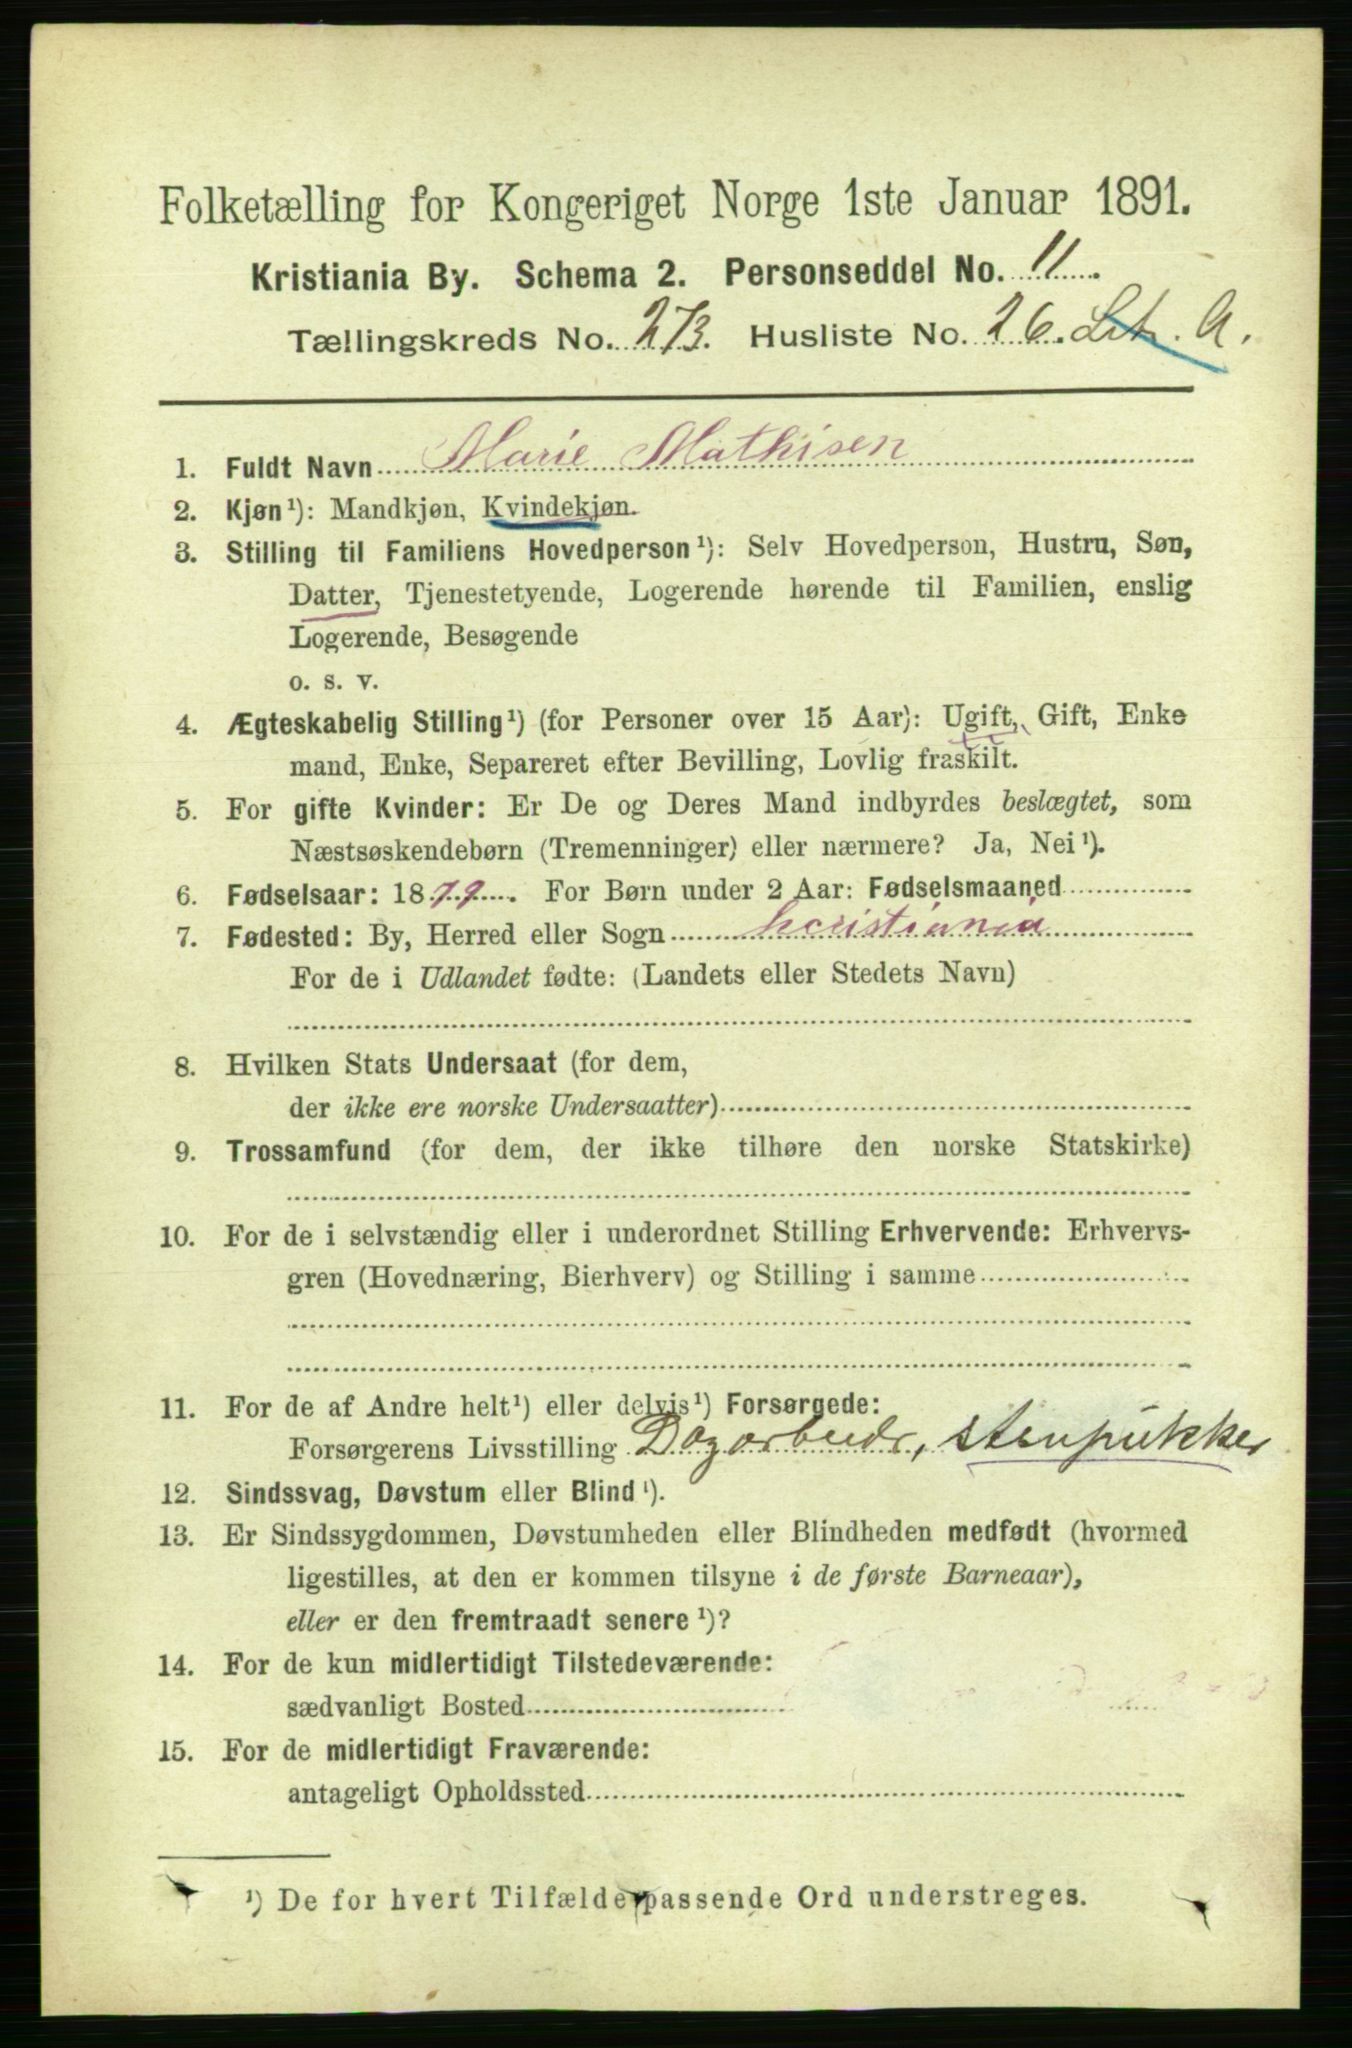 Folketælling for Kongeriget Norge 1ste Januar 1891.
Kristiania By. Schema 2. Personseddel No. 11.
Tællingskreds No. 273. Husliste No. 26. Litr. A.
1. Fuldt Navn Marie Mathisen
2. Kjøn¹): Mandkjøn, Kvindekjøn.
3. Stilling til Familiens Hovedperson¹): Selv Hovedperson, Hustru, Søn,
Datter, Tjenestetyende, Logerende hørende til Familien, enslig
Logerende, Besøgende
o. s. v.
4. Ægteskabelig Stilling¹) (for Personer over 15 Aar): Ugift, Gift, Enke
mand, Enke, Separeret efter Bevilling, Lovlig fraskilt.
5. For gifte Kvinder: Er De og Deres Mand indbyrdes beslægtet, som
Næstsøskendebørn (Tremenninger) eller nærmere? Ja, Nei¹).
6. Fødselsaar: 1879. For Børn under 2 Aar: Fødselsmaaned
7. Fødested: By, Herred eller Sogn Kristiania
For de i Udlandet fødte: (Landets eller Stedets Navn)
8. Hvilken Stats Undersaat (for dem,
der ikke ere norske Undersaatter)
9. Trossamfund (for dem, der ikke tilhøre den norske Statskirke)
10. For de i selvstændig eller i underordnet Stilling Erhvervende: Erhvervs-
gren (Hovednæring, Bierhverv) og Stilling i samme
11. For de af Andre helt¹) eller delvis¹) Forsørgede:
Forsørgerens Livsstilling Dagarbeidr, stenpukker
12. Sindssvag, Døvstum eller Blind¹).
13. Er Sindssygdommen, Døvstumheden eller Blindheden medfødt (hvormed
ligestilles, at den er kommen tilsyne i de første Barneaar),
eller er den fremtraadt senere¹)?
14. For de kun midlertidigt Tilstedeværende:
sædvanligt Bosted
15. For de midlertidigt Fraværende:
antageligt Opholdssted
¹) De for hvert Tilfælde passende Ord understreges.